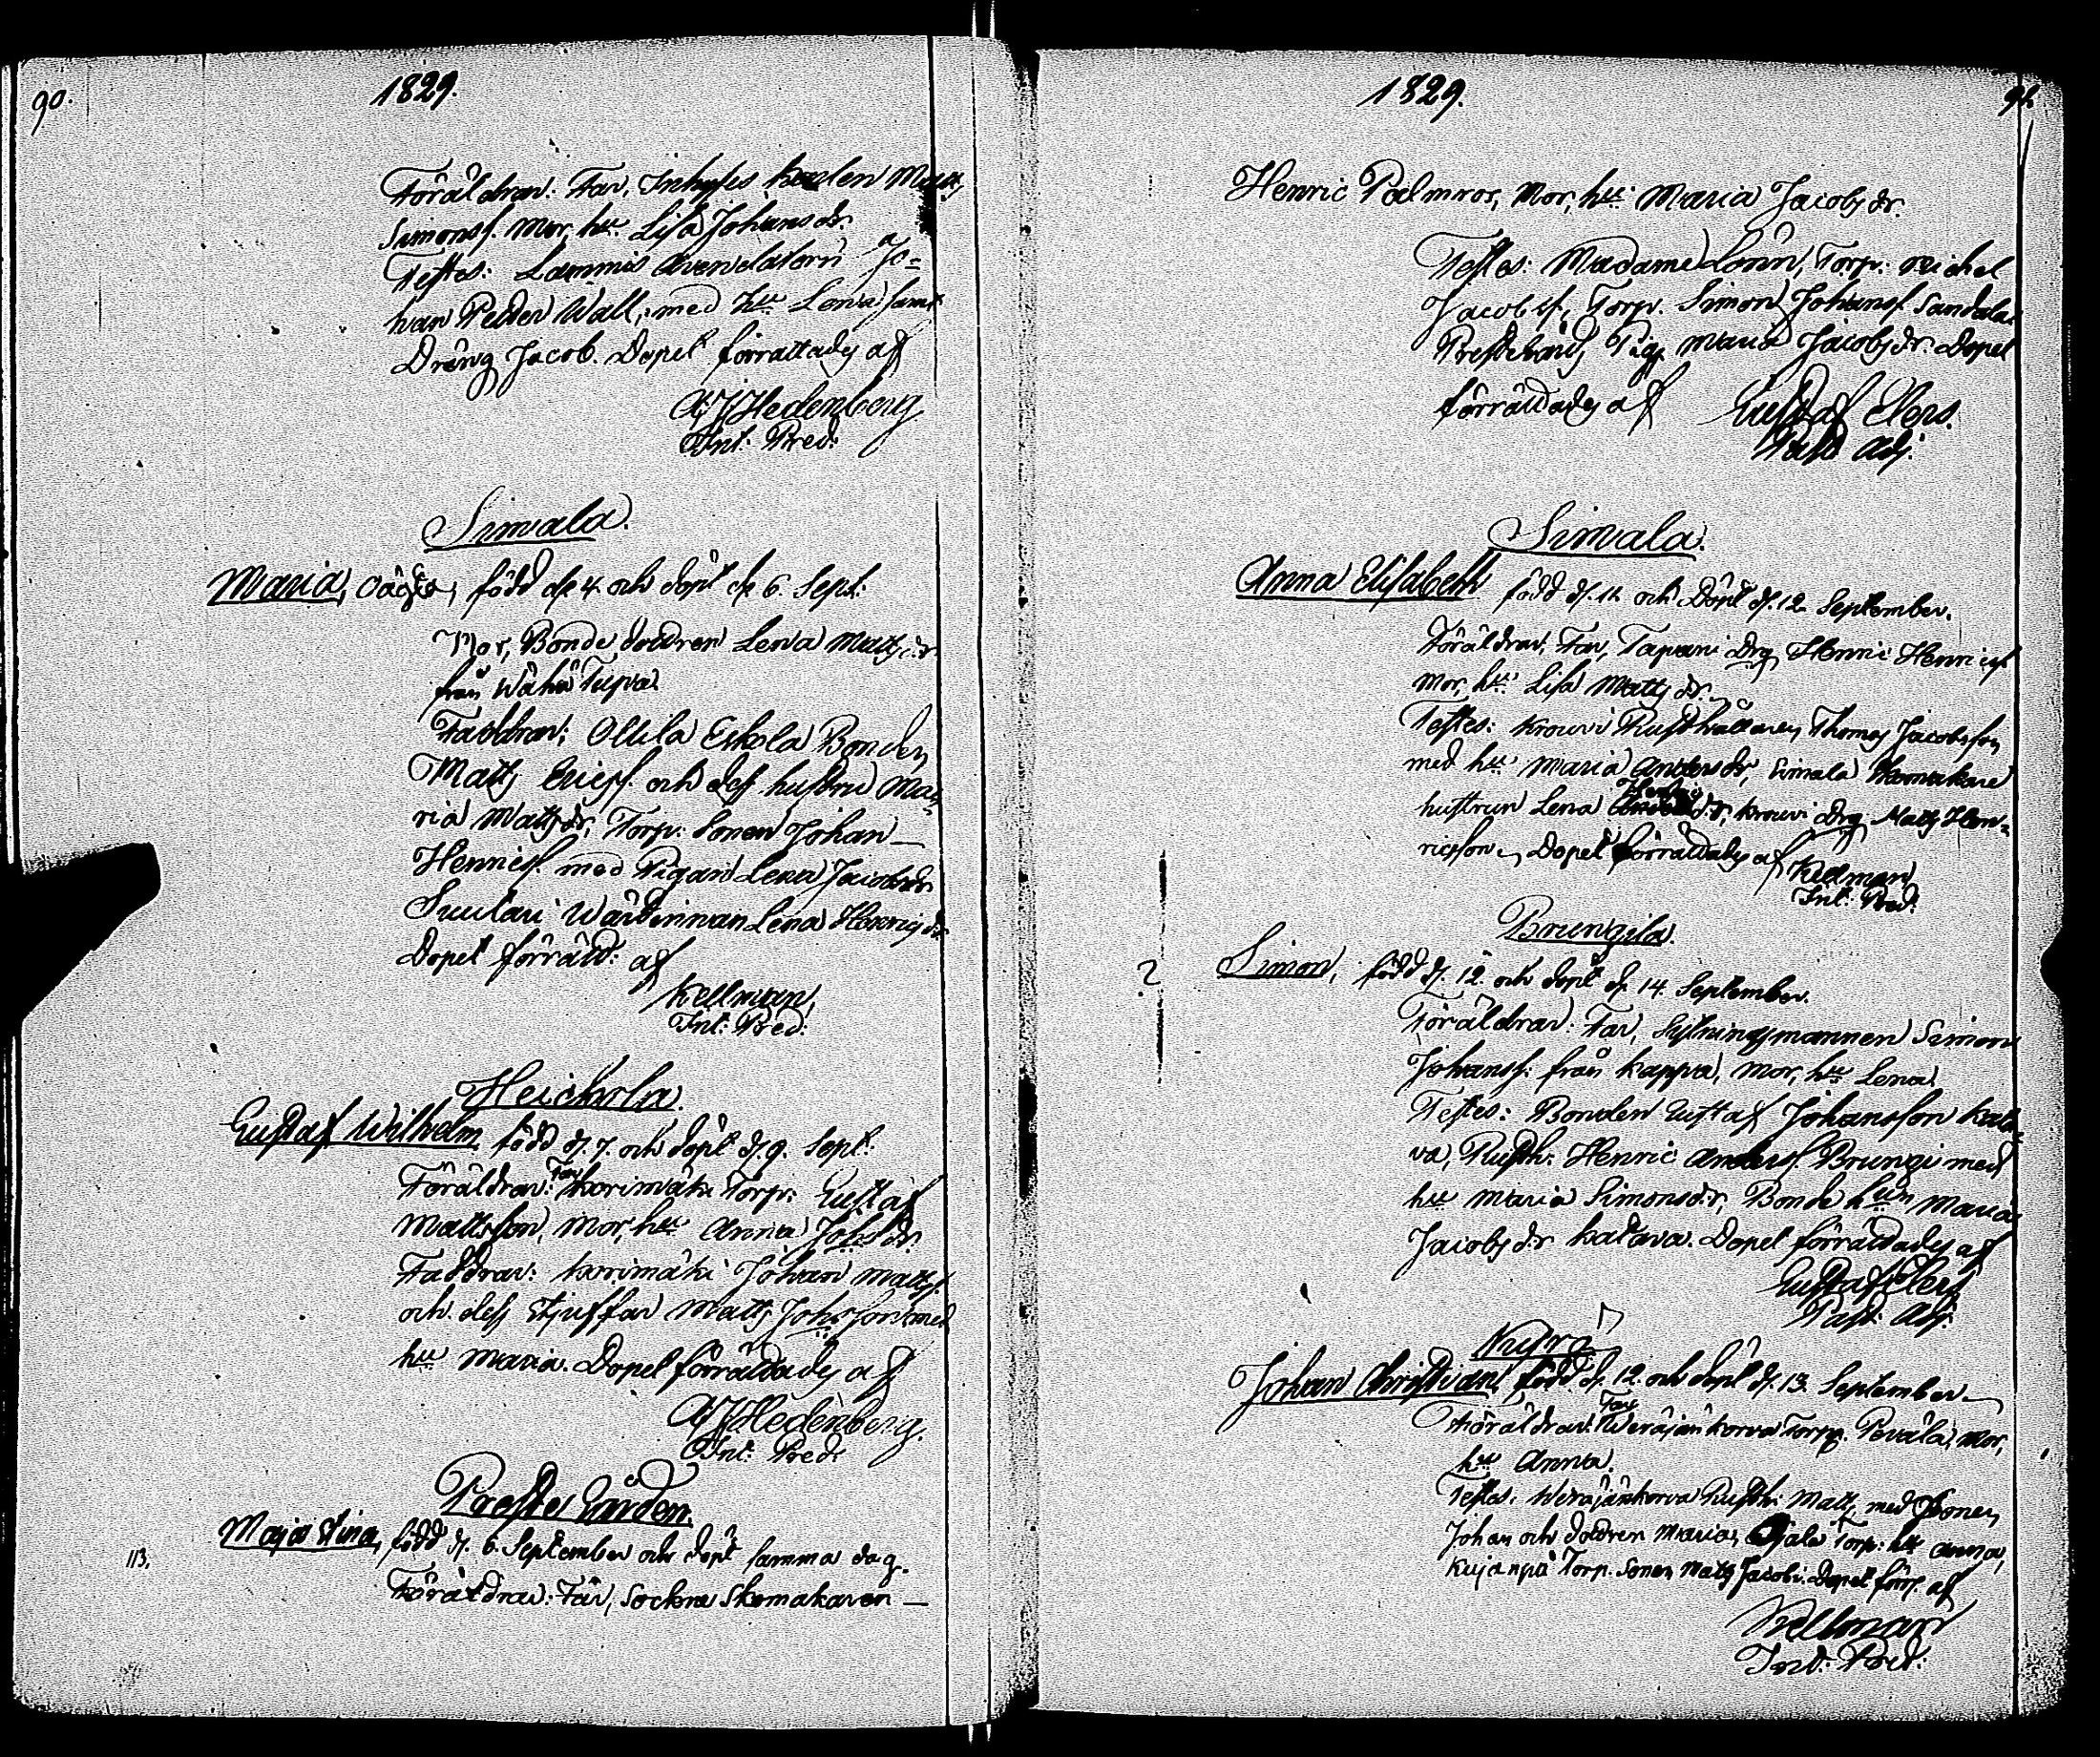 90.
1829.
Föräldrar: Far, Inhyses Karlen Matts
Simonss. Mor, hu: Lisa Johansdr.
Testes: Lammis Arendatorn Jo=
han Petter Wall, med hu Lena samt
Dräng Jacob. Dopet förrättades af
A J Hedenberg
Int: Pred:
Simala.
Maria, oägta, född d. 4. och döpt d. 6. Sept:
Mor, Bonde dottren Lena Matts dr
från Wähä Tupa
Faddrar: Ollila Eskola Bonden
Matts Ericss. och dess hustru Ma=
ria Mattsdr, Torp: Sonen Johan
Henricss. med Pigan Lena Jacobsdr
Suutari Wärdinnan Lena Henricsdr
Dopet förrätt: af
Kellman,
Int: Pred:
Heickola.
Gustaf Wilhelm, född d. 7. och döpt d. 9. Sept:
Föräldrar: Far Korimäki Torp: Gustaf
Mattsson, Mor, hu Anna Johsdr.
Faddrar: Korimäki Johan Mattss.
och dess Stjuffar Matts Johsson med
hu Maria. Dopet förrättades af
A J Hedenberg.
Int: Pred:
Preste Gården.
113.
Maja Stina, född d. 6. September och döpt samma dag.
Föräldrar: Far, Sockne Skomakaren
1829.
91.
Henric Palmros, Mor, hu: Maria Jacobsdr.
Testes: Madame Lönn, Torp: Michel
Jacobss, Torp. Simon Johanss. Sandala
Pig. Maria Jacobsdr. Dopet
förrättades af Gustaf Elers.
Past: Adj.
Simala.
Anna Elisabeth född d. 11. och Döpt d. 12. September.
Föräldrar, Far, Tapani Drg Henric Henricss
Mor, hu: Lisa Matts dr.
Testes: Krouvi Rusthållaren Thomas Jacobsson
med hu Maria Andersdr, Simala Skomakare
hustrun Lena Henricsdr, Krouvi Drg Matts Hen=
ricsson. Dopet förrättades af
Kellman
Int: Pred:
Brungila.
Simon, född d. 12. och döpt d. 14. September.
Föräldrar: Far, Sytningsmannen Simon
Johanss. från Kappa, Mor, hu Lena.
Testes: Bonden Gustaf Johansson Kata=
va, Rusth: Henric Anderss. Brungi med
hu Maria Simonsdr, Bonde hun Maria
Jacobsdr Katava. Dopet förrättades af
Gustaf Elers
Past: Adj.
Johan Christian, född d. 12. och döpt d. 13. September
Föräldrar: Far Weräjänkorva Torp. Mor,
hu Anna.
Testes: Weräjänkorva Rusth: Matts med Sonen
Johan och dottren Maria, Ojala Torp: hu Anna,
Kujanpä Torp. Sonen Matts Jacobs. Dopet förr. af
Kellman
Int: Pred: